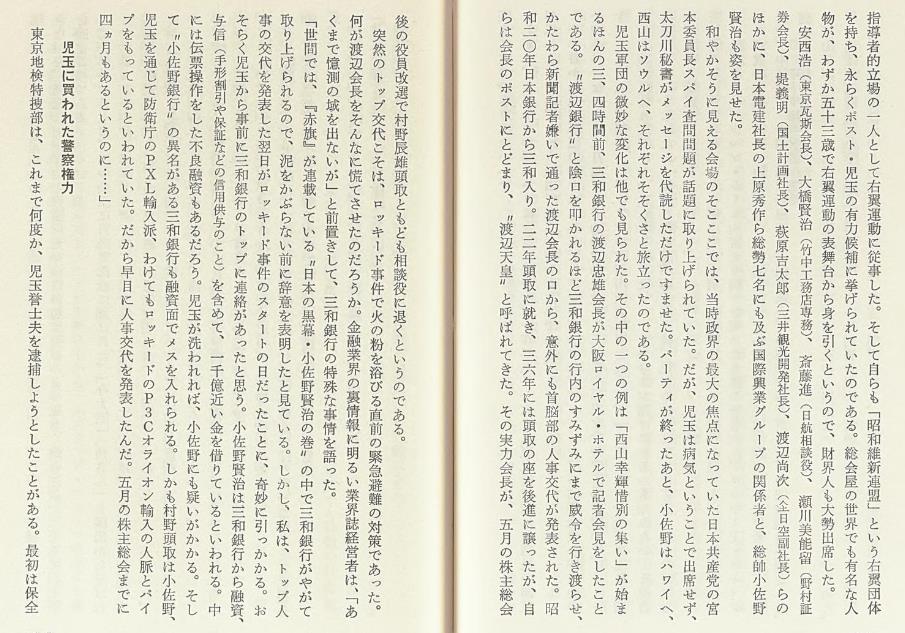 指導者的立場の一人として右翼運動に従事した。そして自らも「昭和維新連盟」という右翼団体
を持ち、永らくポスト・児玉の有力候補に挙げられていたのである。総会屋の世界でも有名な人
物が、わずか五十三歳で右翼運動の表舞台から身を引くというので、財界人も大勢出席した。
安西浩（東京瓦斯会長）、大橋賢治（竹中工務店専務）、斎藤進（日航相談役）、瀬川美能留（野村証
券会長）、堤義明（国土計画社長）、萩原吉太郎（三井観光開発社長）、渡辺尚次（全日空副社長）らの
ほかに、日本電建社長の上原秀作ら総勢七名にも及ぶ国際興業グループの関係者と、総帥小佐野
賢治も姿を見せた。
和やかそうに見える会場のそこここでは、当時政界の最大の焦点になっていた日本共産党の宮
本委員長スパイ査問問題が話題に取り上げられていた。だが、児玉は病気ということで出席せず、
太刀川秘書がメッセージを代読しただけですませた。パーティが終ったあと、小佐野はハワイへ、
西山はソウルへ、それぞれそそくさと旅立ったのである。
児玉軍団の微妙な変化は他でも見られた。その中の一つの例は「西山幸輝惜別の集い」が始ま
るほんの三、四時間前、三和銀行の渡辺忠雄会長が大阪ロイヤル・ホテルで記者会見をしたこと
である。〝渡辺銀行〟と陰口を叩かれるほど三和銀行の行内のすみずみにまで威令を行き渡らせ、
かたわら新聞記者嫌いで通った渡辺会長の口から、意外にも首脳部の人事交代が発表された。昭
和二〇年日本銀行から三和入り。二二年頭取に就き、三六年には頭取の座を後進に譲ったが、自
らは会長のポストにとどまり、〝渡辺天皇〟と呼ばれてきた。その実力会長が、五月の株主総会
後の役員改選で村野辰雄頭取ともども相談役に退くというのである。
突然のトップ交代こそは、ロッキード事件で火の粉を浴びる直前の緊急避難の対策であった。
何が渡辺会長をそんなに慌てさせたのだろうか。金融業界の裏情報に明るい業界誌経営者は、「あ
くまで憶測の域を出ないが」と前置きして、三和銀行の特殊な事情を語った。
「世間では、『赤旗』が連載している〝日本の黒幕・小佐野賢治の巻〟の中で三和銀行がやがて
取り上げられるので、泥をかぶらない前に辞意を表明したと見ている。しかし、私は、トップ人
事の交代を発表した翌日がロッキード事件のスタートの日だったことに、奇妙に引っかかる。お
そらく児玉から事前に三和銀行のトップに連絡があったと思う。小佐野賢治は三和銀行から融資、
与信（手形割引や保証などの信用供与のこと）を含めて、一千億近い金を借りているといわれる。中
には伝票操作をした不良融資もあるだろう。児玉が洗われれば、小佐野にも疑いがかかる。そし
て〝小佐野銀行〟の異名がある三和銀行も融資面でメスを入れられる。しかも村野頭取は小佐野、
児玉を通じて防衛庁のＰＸＬ輸入派、わけてもロッキードのＰ３Ｃオライオン輸入の人脈とパイ
プをもっているといわれていた。だから早目に人事交代を発表したんだ。五月の株主総会までに
四ヵ月もあるというのに……」
児玉に買われた警察権力
東京地検特捜部は、これまで何度か、児玉誉士夫を逮捕しようとしたことがある。最初は保全